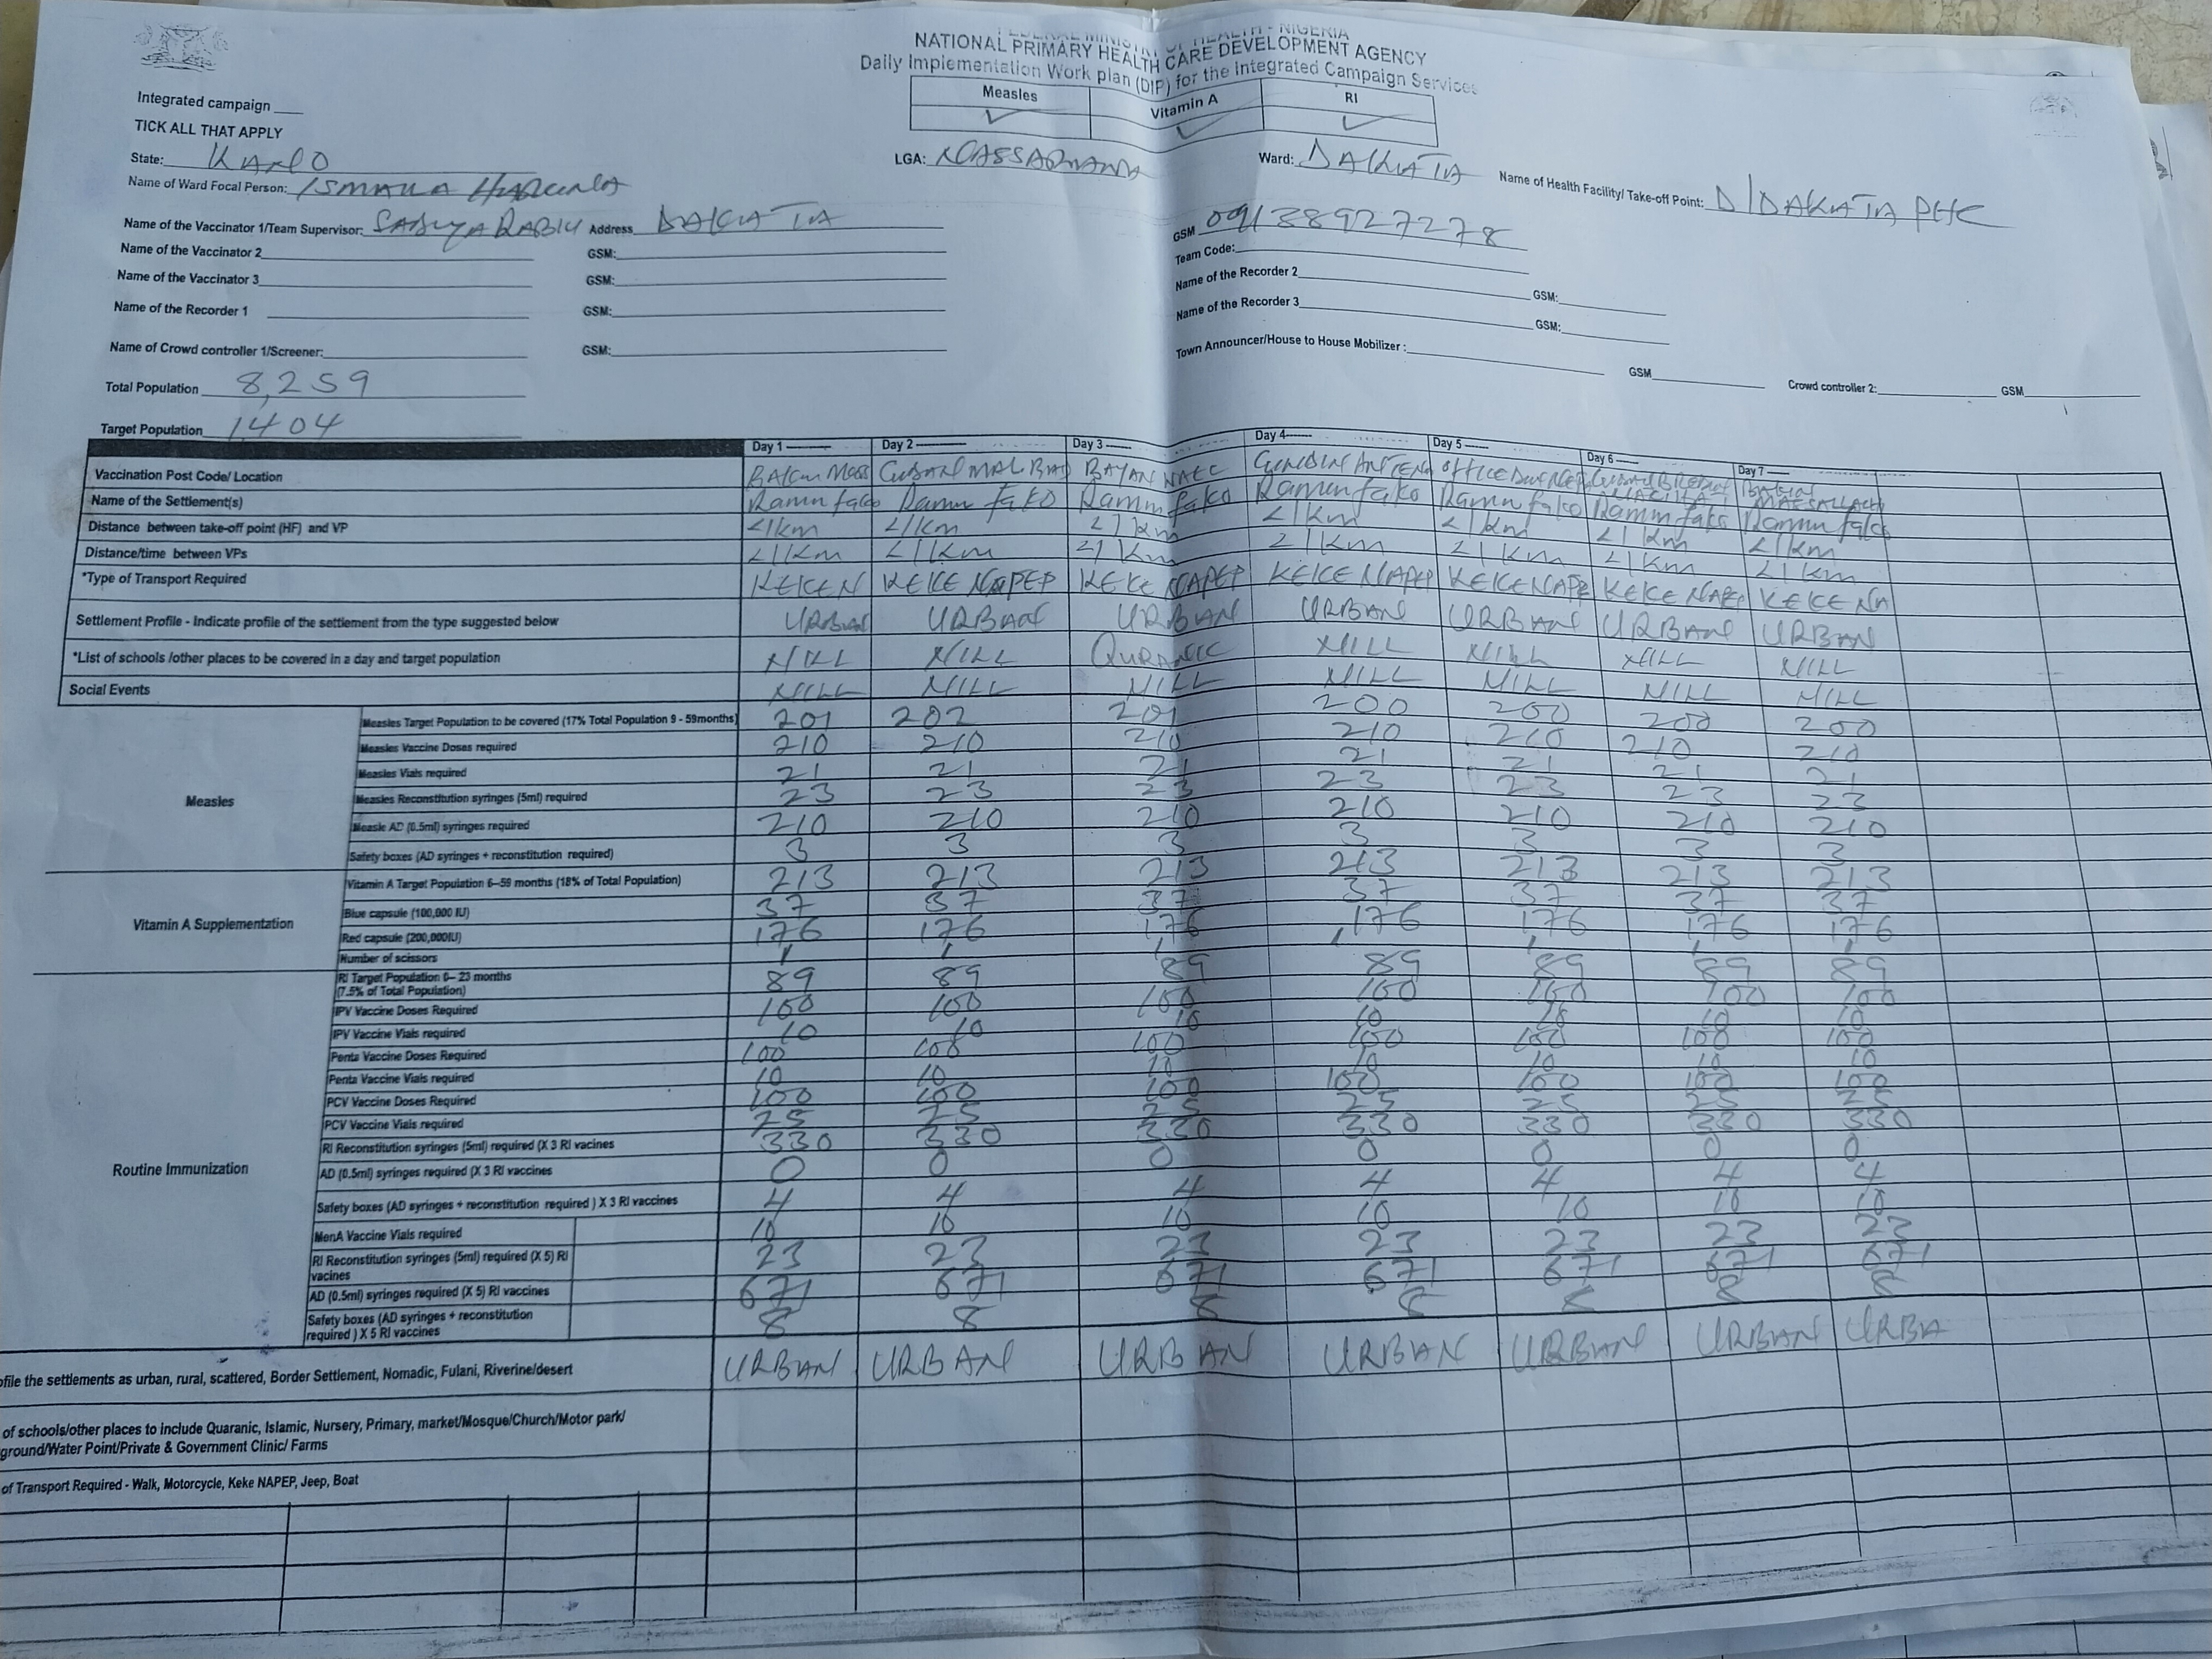 NATIONAL PRIMARY HEALTH CARE DEVELOPMENT AGENCY
Daily Implementation Work plan (DIP) for the Integrated Campaign Services
Integrated campaign
Measles Vitamin A RI
TICK ALL THAT APPLY ✓ ✓ ✓
State: KANO LGA: NASSARAWA Ward: DAKATA Name of Health Facility/ Take-off Point: DAKATA PHC
Name of Ward Focal Person:
Name of the Vaccinator 1/Team Supervisor: SADIYA RABIU Address DAKATA GSM 09138927278
Name of the Vaccinator 2 GSM: Team Code:
Name of the Vaccinator 3 GSM: Name of the Recorder 2 GSM:
Name of the Recorder 1 GSM: Name of the Recorder 3 GSM:
Name of Crowd controller 1/Screener: GSM: Town Announcer/House to House Mobilizer : GSM
Total Population 8,259 Crowd controller 2: GSM
Target Population 1,404
Day 1 Day 2 Day 3 Day 4 Day 5 Day 6 Day 7
Vaccination Post Code/ Location
Name of the Settlement(s)
Distance between take-off point (HF) and VP <1km <1km <1km <1km <1km <1km <1km
Distance/time between VPs <1km <1km <1km <1km <1km <1km <1km
*Type of Transport Required KEKE N KEKE NAPEP KEKE NAPEP KEKE NAPEP KEKE NAPE KEKE NAPE KEKE NA
Settlement Profile - Indicate profile of the settlement from the type suggested below URBAN URBAN URBAN URBAN URBAN URBAN URBAN
*List of schools /other places to be covered in a day and target population NILL NILL NILL NILL NILL NILL
Social Events NILL NILL NILL NILL NILL NILL NILL
Measles
Measles Target Population to be covered (17% Total Population 9 - 59months) 201 202 201 200 200 200 200
Measles Vaccine Doses required 210 210 210 210 210 210 210
Measles Vials required 21 21 21 21 21 21 21
Measles Reconstitution syringes (5ml) required 23 23 23 23 23 23 23
Measle AD (0.5ml) syringes required 210 210 210 210 210 210 210
Safety boxes (AD syringes + reconstitution required) 3 3 3 3 3 3 3
Vitamin A Supplementation
Vitamin A Target Population 6–59 months (18% of Total Population) 213 213 213 213 213 213 213
Blue capsule (100,000 IU) 37 37 37 37 37 37 37
Red capsule (200,000IU) 176 176 176 176 176 176 176
Number of scissors 1 1 1 1 1 1 1
Routine Immunization
RI Target Population 0– 23 months (7.5% of Total Population) 89 89 89 89 89 89 89
IPV Vaccine Doses Required 100 100 100 100 100 100 100
IPV Vaccine Vials required 10 10 10 10 10 10 10
Penta Vaccine Doses Required 100 100 100 100 100 100 100
Penta Vaccine Vials required 10 10 10 10 10 10 10
PCV Vaccine Doses Required 100 100 100 100 100 100 100
PCV Vaccine Vials required 25 25 25 25 25 25 25
RI Reconstitution syringes (5ml) required (X 3 RI vaccines 330 330 330 330 330 330 330
AD (0.5ml) syringes required (X 3 RI vaccines 0 0 0 0 0 0 0
Safety boxes (AD syringes + reconstitution required ) X 3 RI vaccines 4 4 4 4 4 4 4
MenA Vaccine Vials required 10 10 10 10 10 10 10
RI Reconstitution syringes (5ml) required (X 5) RI vacines 23 23 23 23 23 23 23
AD (0.5ml) syringes required (X 5) RI vaccines 671 671 671 671 671 671 671
Safety boxes (AD syringes + reconstitution required ) X 5 RI vaccines 8 8 8 8 8 8 8
URBAN URBAN URBAN URBAN URBAN URBAN URBA
ofile the settlements as urban, rural, scattered, Border Settlement, Nomadic, Fulani, Riverine/desert
of schools/other places to include Quaranic, Islamic, Nursery, Primary, market/Mosque/Church/Motor park/
ground/Water Point/Private & Government Clinic/ Farms
of Transport Required - Walk, Motorcycle, Keke NAPEP, Jeep, Boat